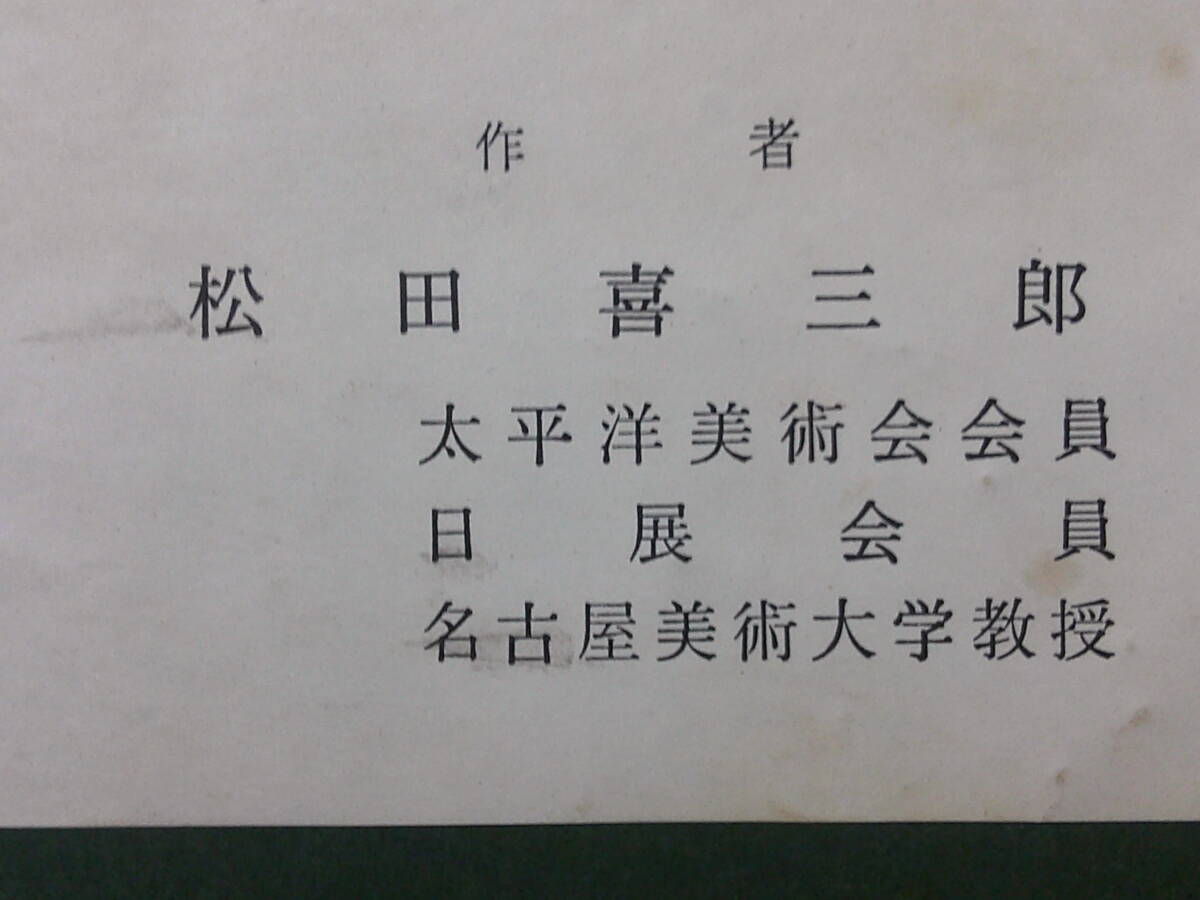 作者
松田喜三郎
太平洋美術会会員
日展会員
名古屋美術大学教授